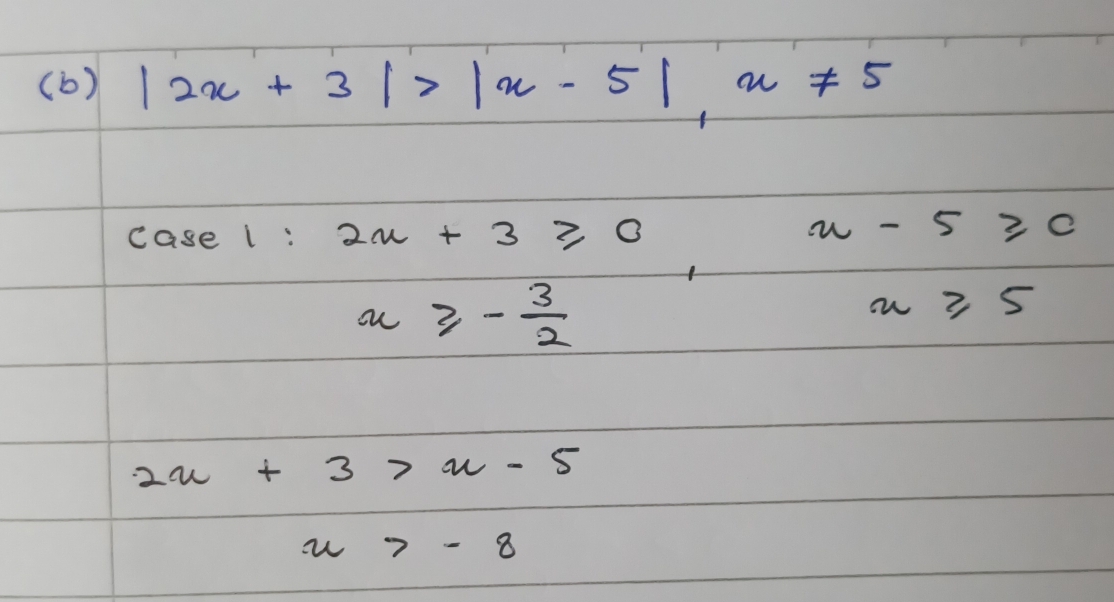 (b) |2x + 3| > |x - 5|, x ≠ 5
case 1: 2x + 3 ⩾ 0, x - 5 ⩾ 0
x ⩾ -3/2 x ⩾ 5
2x + 3 > x - 5
x > -8